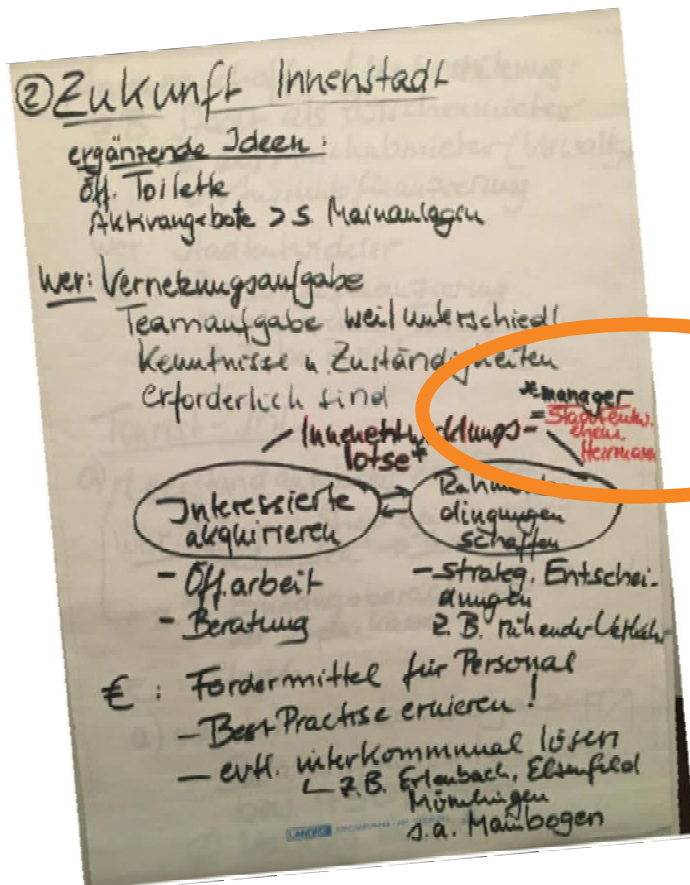 ② Zukunft Innenstadt
ergänzende Ideen:
öff. Toilette
Aktivangebote > s. Mainanlagen
wer: Vernetzungsaufgabe
Teamaufgabe weil unterschiedl.
Kenntnisse u. Zuständigkeiten
erforderlich sind
*manager
= Stadtentw.
Herrmann
Innenentwicklungs-
lotse*
Interessierte
akquirieren
Rahmenbe
dingungen
schaffen
- Öff.arbeit
- Beratung
- strateg. Entschei-
dungen
z.B. ruhender Verkehr
€ : Fördermittel für Personal
- Best Practise eruieren!
- evtl. interkommunal lösen
z.B. Erlenbach, Elsenfeld
s.a. Mainbogen